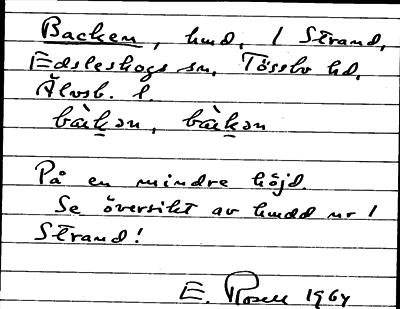 Backen, hmd, 1 Strand,
Edsleskogs sn, Tössbo hd,
Älvsb. l.
bàkən, bàkən
På en mindre höjd.
Se översikt av hmdd nr 1
Strand!
E. Rosell 1964